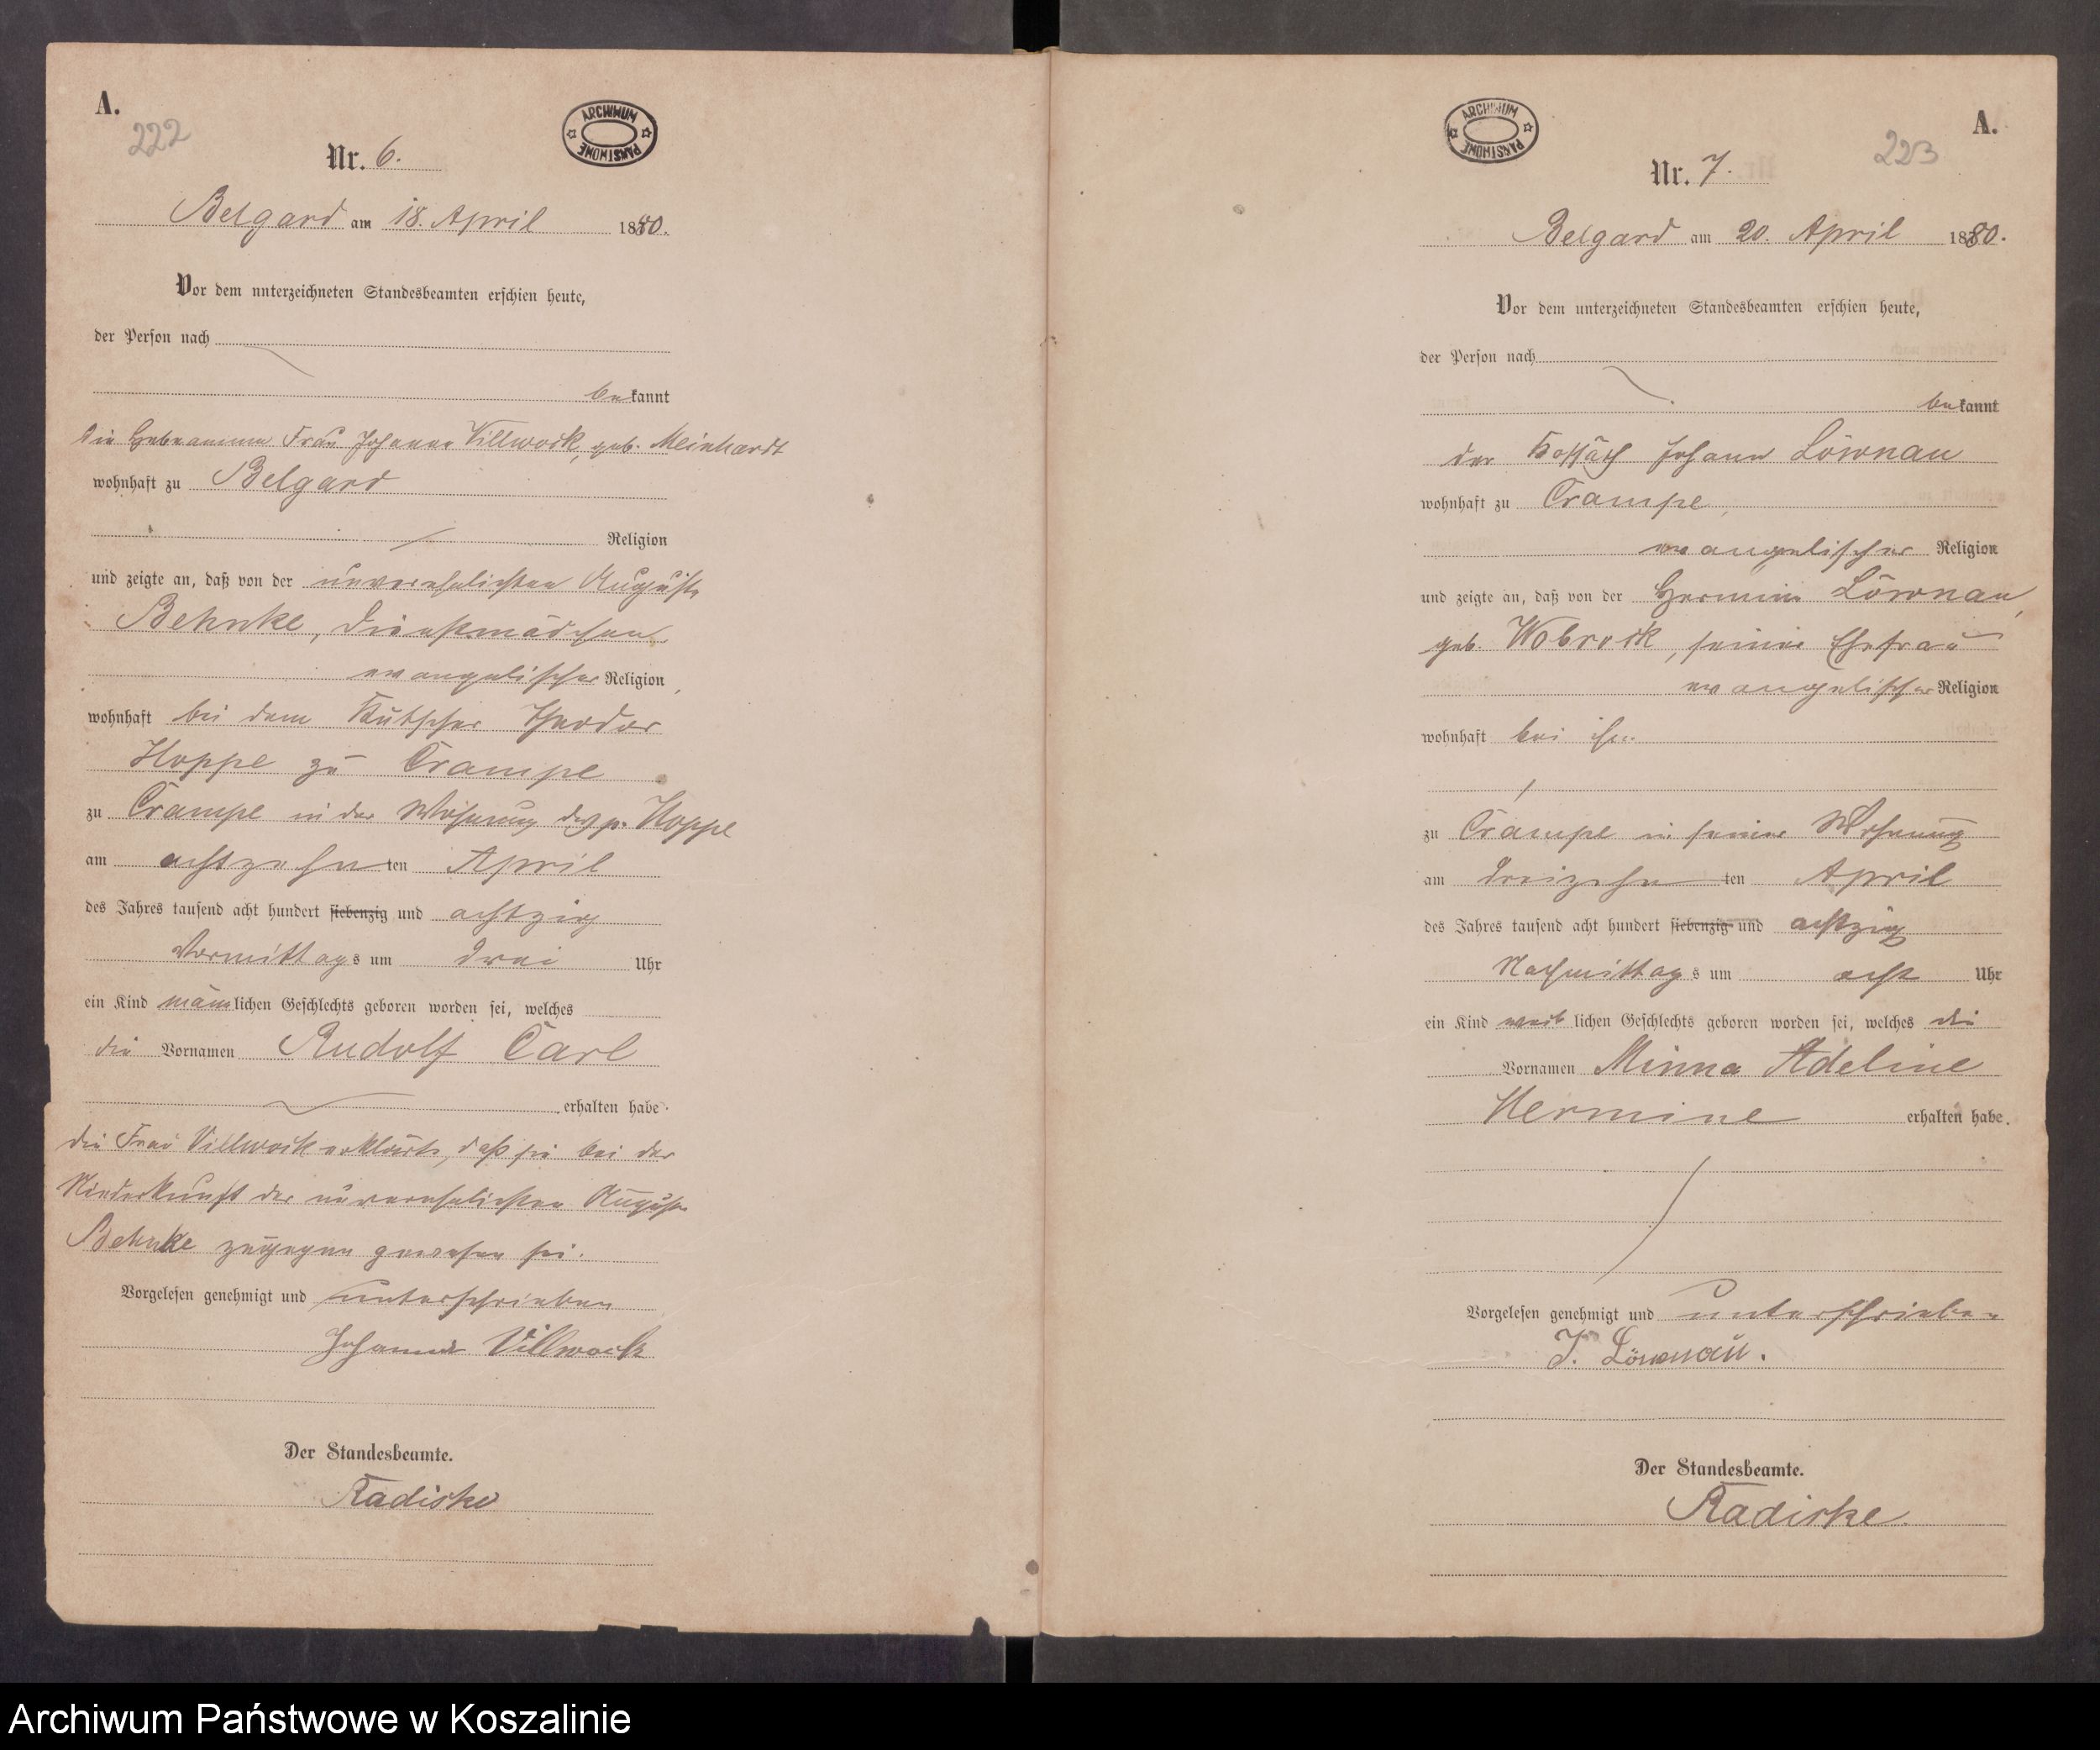 A.
222
ARCHIWUM PAŃSTWOWE
Nr. 6.
Belgard am 18. April 1880.
Vor dem unterzeichneten Standesbeamten erschien heute,
der Person nach
bekannt
die Hebeamme Frau Johanna Villwock, geb. Meinhardt
wohnhaft zu Belgard
Religion
und zeigte an, daß von der unverehelichten Auguste
Behnke, Dienstmädchen
evangelischer Religion,
wohnhaft bei dem Kutscher Theodor
Hoppe zu Crampe
zu Crampe in der Wohnung des p. Hoppe
am achtzehnten April
des Jahres tausend acht hundert siebenzig und achtzig
Vormittags um drei Uhr
ein Kind männlichen Geschlechts geboren worden sei, welches
die Vornamen Rudolf Carl
erhalten habe.
die Frau Villwock erklärte, daß sie bei der
Niederkunft der unverehelichten Auguste
Behnke zugegen gewesen sei.
Vorgelesen genehmigt und unterschrieben
Johanna Villwock
Der Standesbeamte.
Radiske
A.
223
ARCHIWUM PAŃSTWOWE
Nr. 7.
Belgard am 20. April 1880.
Vor dem unterzeichneten Standesbeamten erschien heute,
der Person nach
bekannt
der Kossäth Johann Löwnau
wohnhaft zu Crampe,
evangelischer Religion
und zeigte an, daß von der Hermine Löwnau,
geb. Wobrock, seiner Ehefrau
evangelischer Religion
wohnhaft bei ihm
zu Crampe in seiner Wohnung
am dreizehnten April
des Jahres tausend acht hundert siebenzig und achtzig
Nachmittags um acht Uhr
ein Kind weiblichen Geschlechts geboren worden sei, welches die
Vornamen Minna Adeline
Hermine erhalten habe.
Vorgelesen genehmigt und unterschrieben
J. Löwnau.
Der Standesbeamte.
Radiske.
Archiwum Państwowe w Koszalinie